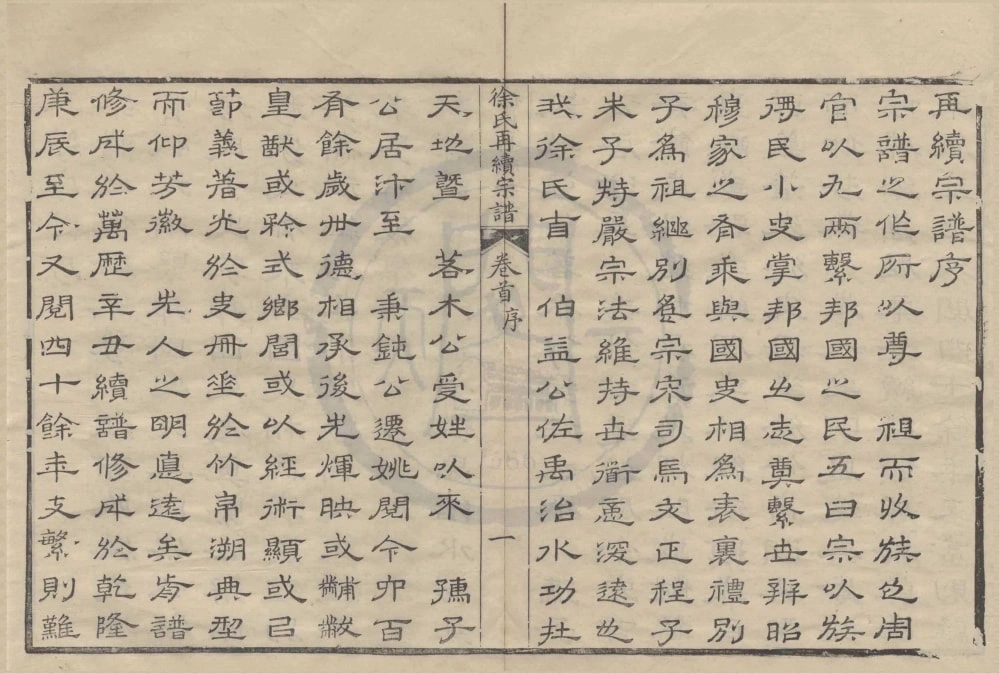 再續宗譜序
宗譜之作所以尊　祖而收族也周
官以九兩繫邦國之民五曰宗以族
得民小史掌邦國之志奠繫世辨昭
穆家之有乘與國史相爲表裏禮別
子爲祖繼別爲宗宋司馬文正程子
朱子特嚴宗法維持世衟慮深遠也
我徐氏自　伯益公佐禹治水功在
徐氏再續宗譜　卷首序　一
天地暨　若木公受姓以來　孺子
公居汴至　秉鈍公遷姚閱今六百
有餘歲世德相承後先輝映或黼黻
皇猷或矜式鄉閭或以經術顯或以
節義著光於史冊垂於竹帛溯典型
而仰芳徽　先人之明惪遠矣有譜
修成於萬歷辛丑續譜修成於乾隆
庚辰至今又閱四十餘年支繁則難